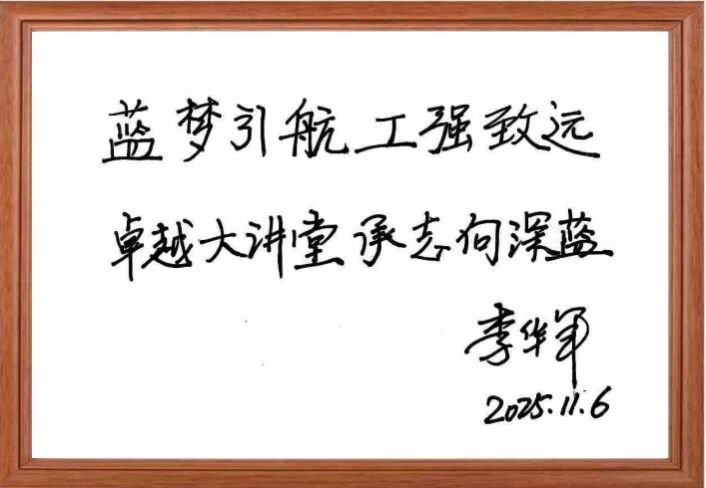 蓝梦引航工强致远
卓越大讲堂承志向深蓝
李华军
2025.11.6